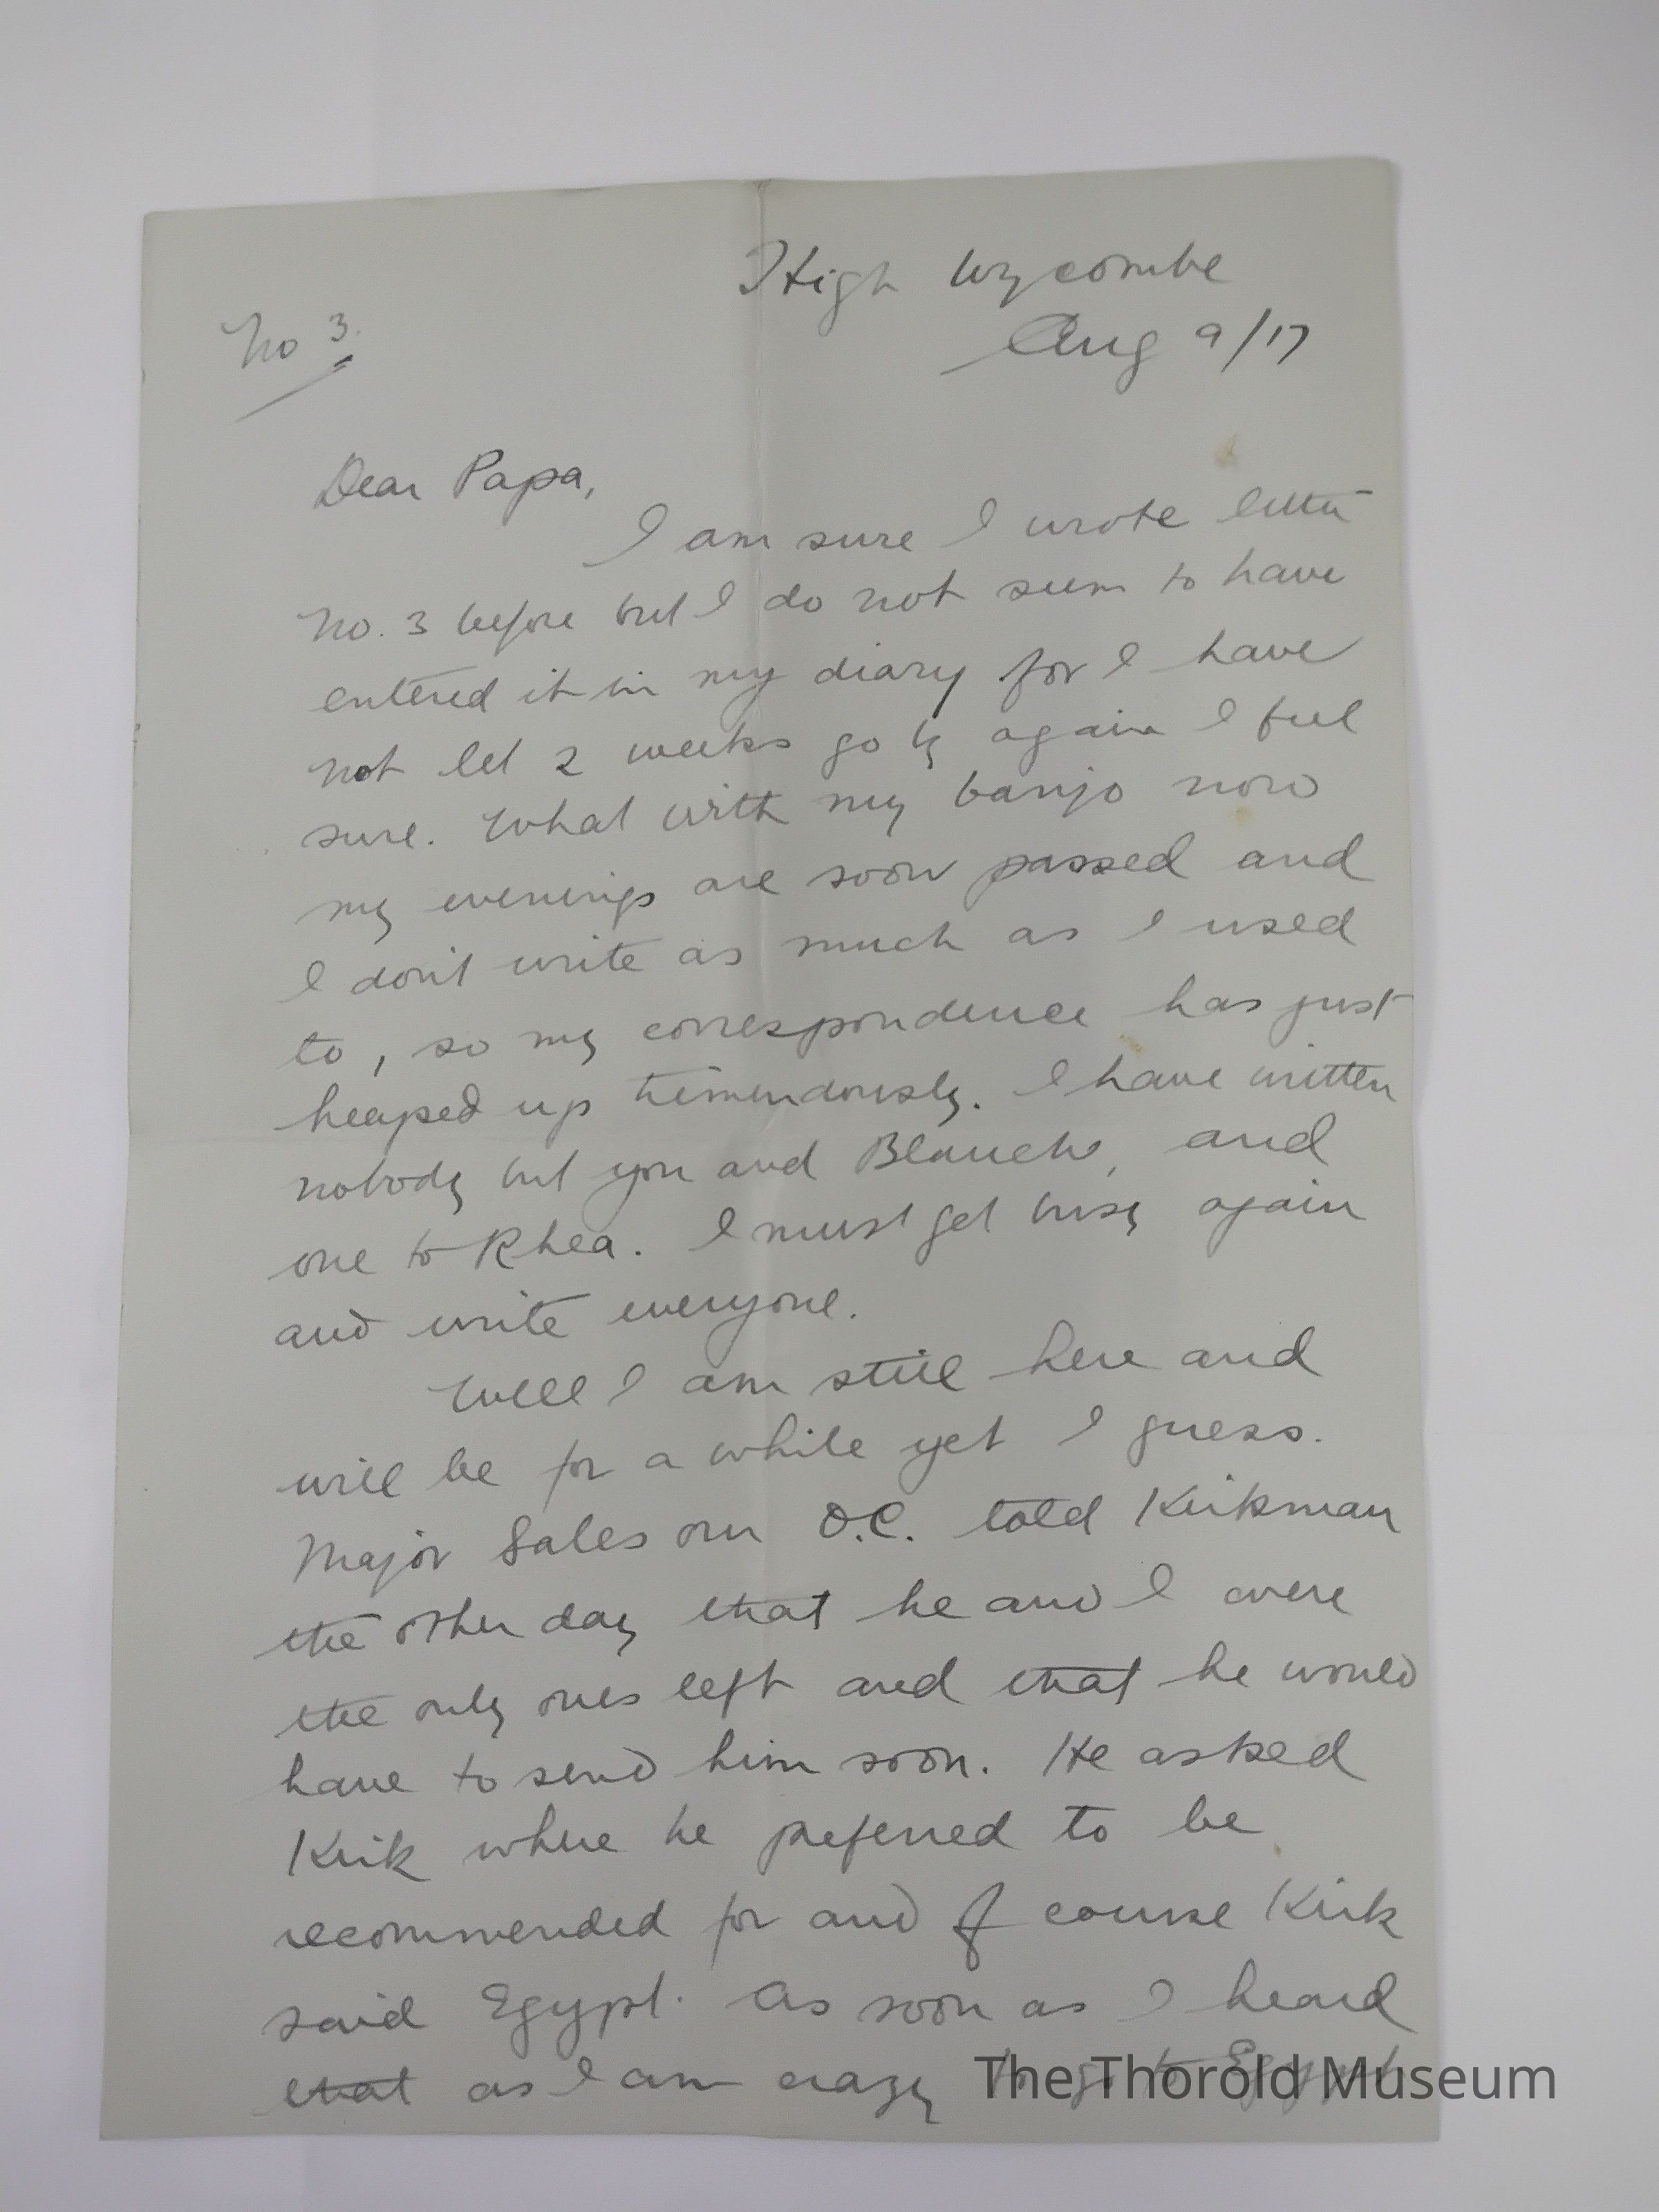 High Wycombe
Aug 9/17
No 3.
Dear Papa,
I am sure I wrote letter
No. 3 before but I do not seem to have
entered it in my diary for I have
not let 2 weeks go by again I feel
sure. What with my banjo now
my evenings are soon passed and
I don't write as much as I used
to, so my correspondence has just
heaped up tremendously. I have written
nobody but you and Blanche, and
one to Rhea. I must get busy again
and write everyone.
Well I am still here and
will be for a while yet I guess.
Major Sales our O.C. told Kirkman
the other day that he and I were
the only ones left and that he would
have to send him soon. He asked
Kirk where he preferred to be
recommended for and of course Kirk
said Egypt. As soon as I heard
that as I am crazy to go to Egypt
The Thorold Museum